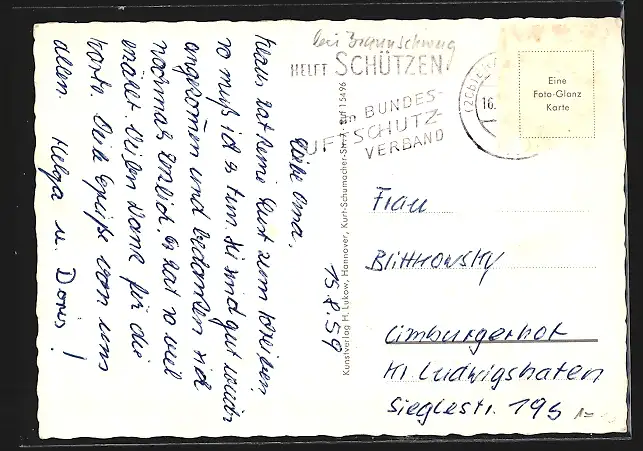 bei Braunschweig
HELFT SCHÜTZEN!
im BUNDES-
LUFTSCHUTZ-
VERBAND
(20b)
16.
Eine
Foto-Glanz
Karte
15.8.59
Liebe Oma.
Klaus hat keine Lust zum schreiben
so muß ich es tun. Sie sind gut wieder
angekommen und bedanken sich
nochmal herzlich. Er hat so viel
erzählt. Vielen Dank für die
Karte. Viele Grüße von uns
allen. Helga u. Doris!
Kunstverlag H. Lukow, Hannover, Kurt-Schumacher-Str. 7, Ruf 15496
Frau
Blittkowsky
Limburgerhof
Kr. Ludwigshafen
Sieglestr. 195